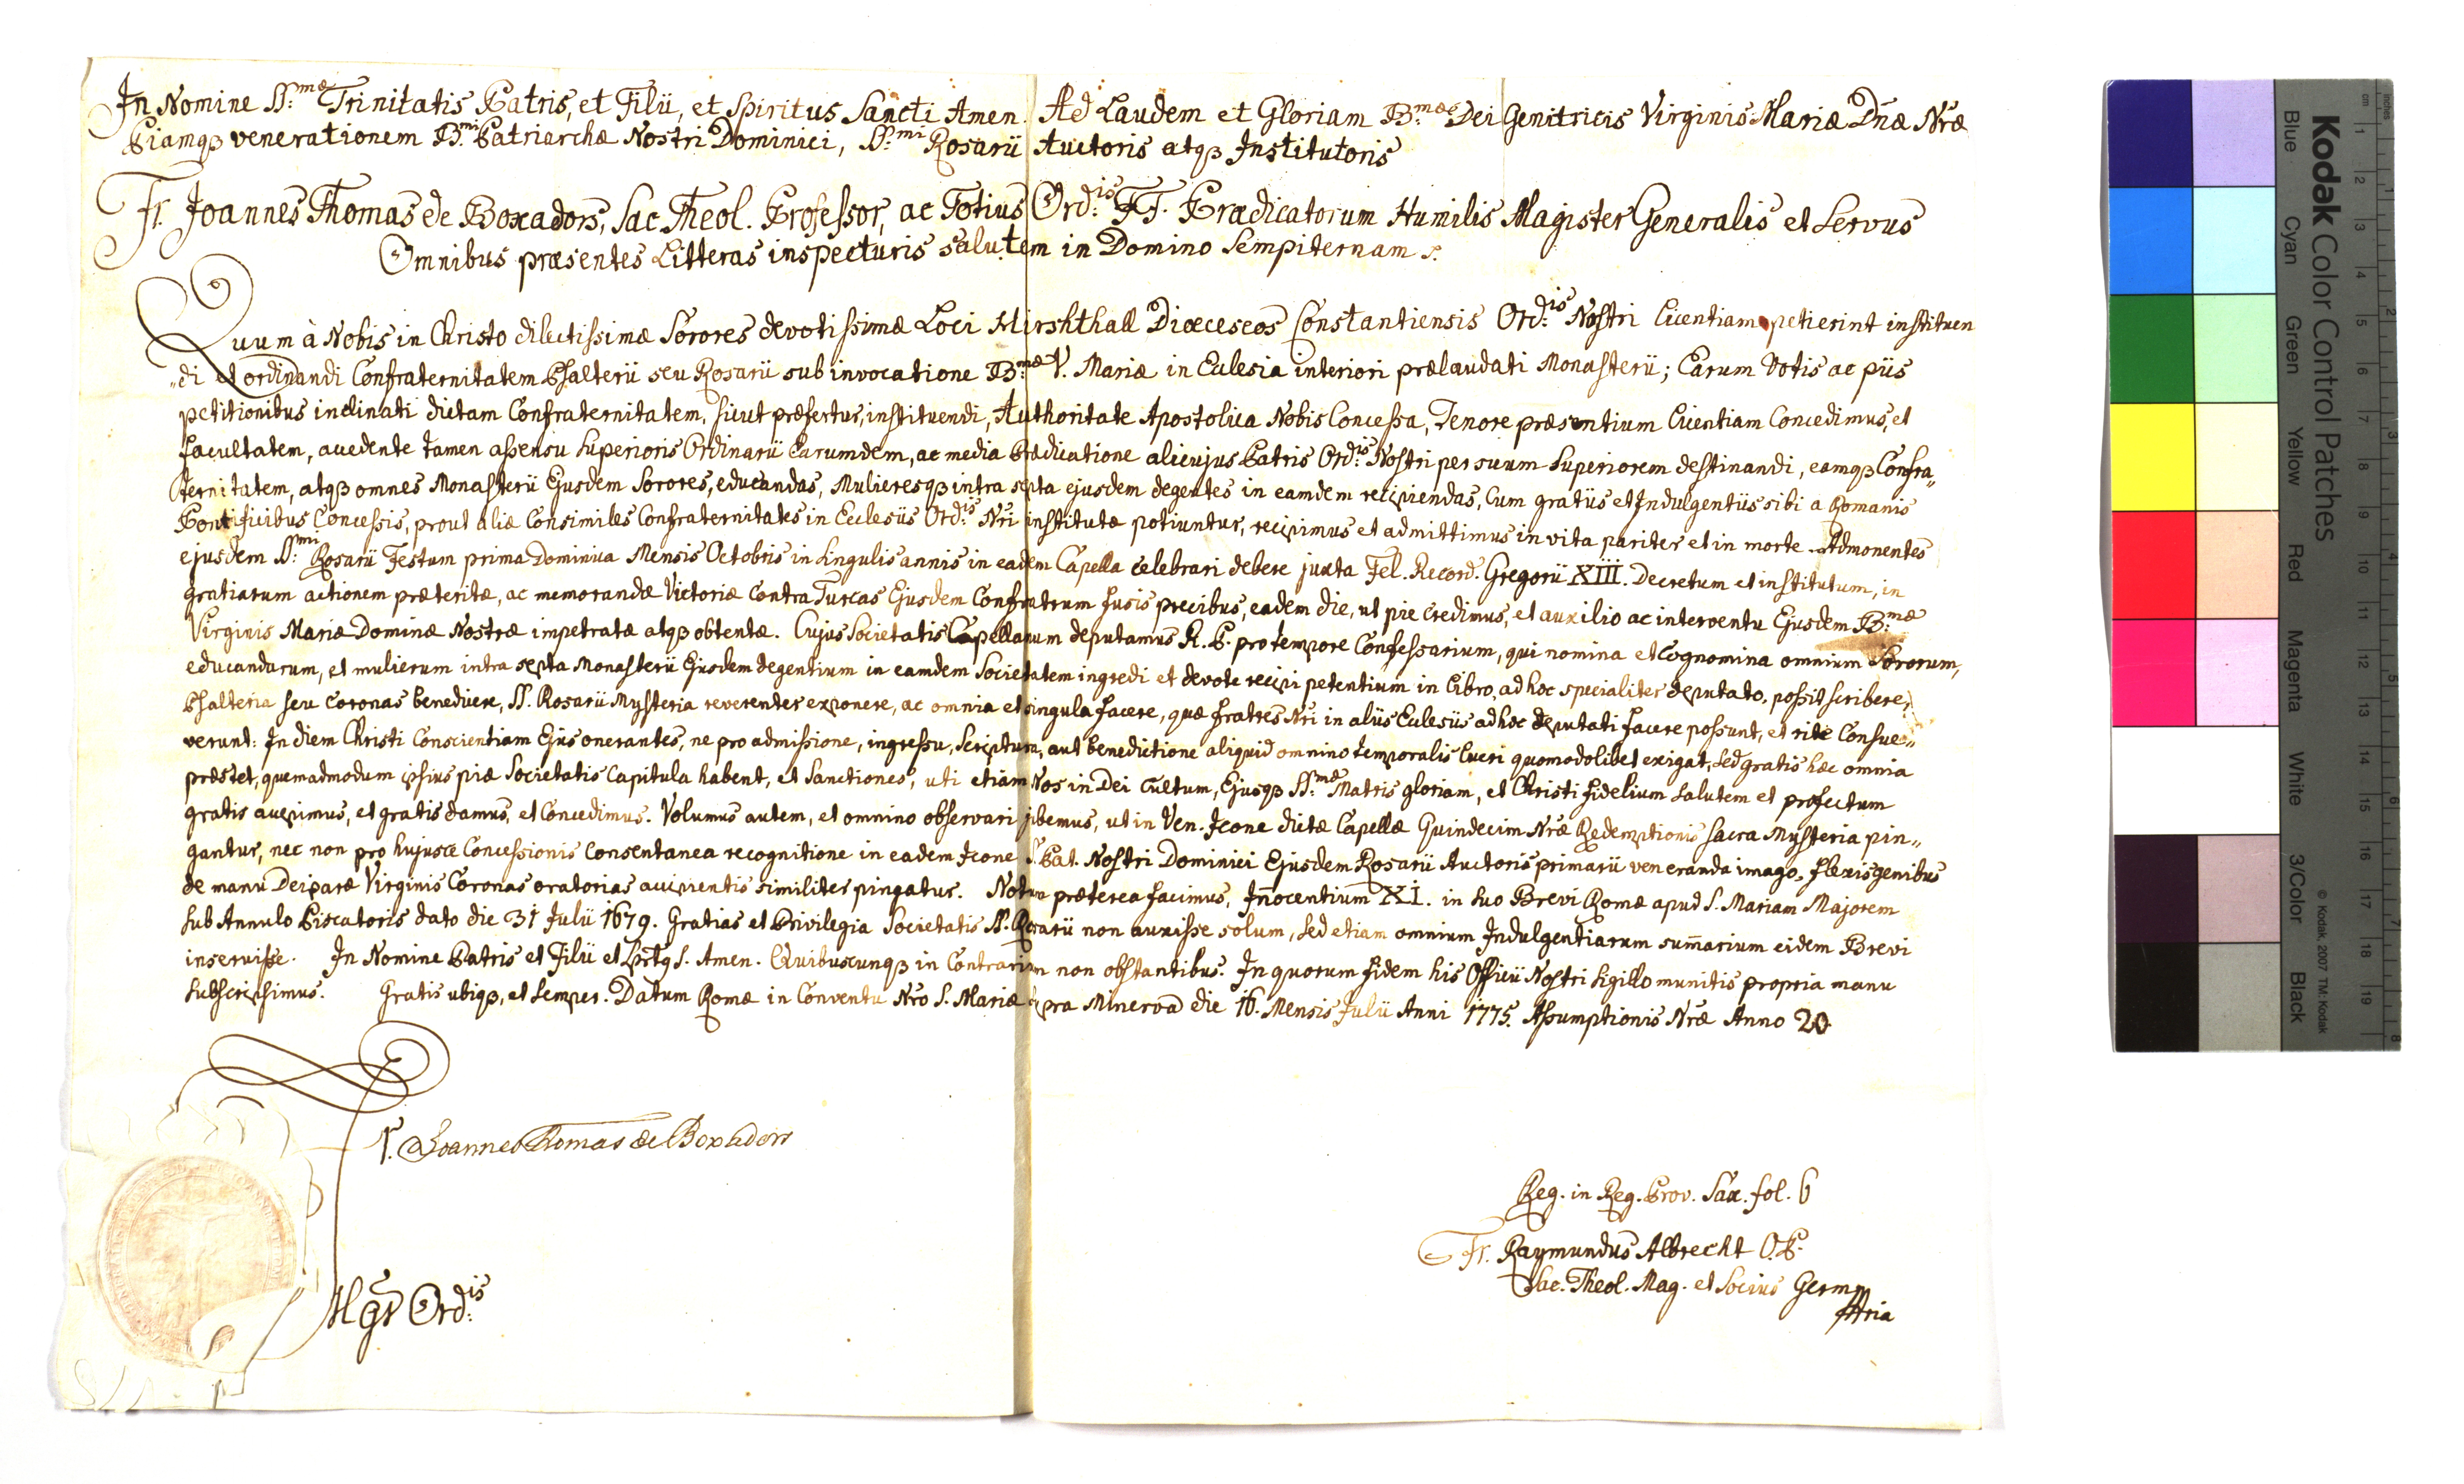 In Nomine SS:mæ Trinitatis Patris, et Filii, et Spiritus Sancti Amen. Ad Laudem et Gloriam B:mæ Dei Genitricis Virginis Mariæ Dnæ Nræ
Piamqз venerationem B:mi Patriarchæ Nostri Dominici, SS:mi Rosarii Auctoris atqз Institutoris
Fr. Joannes Thomas de Boxadors, Sac. Theol. Professor, ac Totius Ord:is FF. Prædicatorum Humilis Magister Generalis et Servus
Omnibus præsentes Litteras inspecturis salutem in Domino Sempiternam
Quum à Nobis in Christo dilectissimæ Sorores devotissimæ Loci Hirshthall Diæceseos Constantiensis Ord:is Nostri licentiam petierint instituen
„di et ordinandi Confraternitatem Psalterii seu Rosarii sub invocatione B:mæ V. Mariæ in Eclesia interiori prælaudati Monasterii; Earum Votis ac piis
petitionibus inclinati dictam Confraternitatem, sicut præfertur, instituendi, Authoritate Apostolica Nobis Concessa, Tenore præsentium licentiam Concedimus, et
facultatem, accedente tamen assensu Superioris Ordinarii Earumdem, ac media Prædicatione alicujus Patris Ord:is Nostri per suum Superiorem destinandi, eamqз Confra„
ternitatem, atqз omnes Monasterii Ejusdem Sorores, educandas, Mulieresqз intra septa ejusdem degentes in eamdem recipiendas, Cum gratiis et Indulgentiis sibi a Romanis
Pontificibus Concessis, prout aliæ Consimiles Confraternitates in Ecclesiis Ord:is Nri institutæ potiuntur, recipimus et admittimus in vita pariter et in morte. Admonentes
ejusdem SS:mi Rosarii Festum prima Dominica Mensis Octobris in singulis annis in eadem Capella celebrari debere juxta Fel. Record. Gregorii XIII. Decretum et institutum, in
gratiarum actionem præteritæ, ac memorandæ Victoriæ Contra Turcas Ejusdem Confratrum fusis precibus, eadem die, ut pie Credimus, et auxilio ac interventu Ejusdem B:mæ
Virginis Mariæ Dominæ Nostræ impetratæ atqз obtentæ. Cujus Societatis Capellanum deputamus R. P. pro tempore Confessarium, qui nomina et Cognomina omnium Sororum,
educandarum, et mulierum intra septa Monasterii Ejusdem degentium in eamdem Societatem ingredi et devote recipi petentium in libro, ad hoc specialiter deputato, possit scribere,
Psalteria seu Coronas benedicere, SS. Rosarii Mysteria reverenter exponere, ac omnia et singula facere, quæ fratres Nri in aliis Eclesiis ad hoc deputati facere possunt, et ritè Consue„
verunt: In diem Christi Conscientiam Ejus onerantes, ne pro admissione, ingressu, Scriptura, aut benedictione aliquid omnino temporalis lucri quomodolibet exigat, sed gratis hæc omnia
præstet, quemadmodum ipsius piæ Societatis Capitula habent, et Sanctiones, uti etiam Nos in Dei Cultum, Ejusqз SS:mæ Matris gloriam, et Christi fidelium salutem et profectum
gratis accepimus, et gratis damus, et Concedimus. Volumus autem, et omnino observari jubemus, ut in Ven. Icone dictæ Capellæ Quindecim Nræ Redemptionis sacra Mysteria pin„
gantur, nec non pro hujusce Concessionis Consentanea recognitione in eadem Icone S. Pat. Nostri Dominici Ejusdem Rosarii Auctoris primarii veneranda imago, flexis genibus
de manu Deiparæ Virginis Coronas oratorias accipientis similiter pingatur. Notum præterea facimus, Iñocentium XI. in suo Brevi Romæ apud S. Mariam Majorem
sub Annulo Piscatoris dato die 31 Julii 1679. Gratias et Privilegia Societatis SS. Rosarii non auxisse solum, sed etiam omnium Indulgentiarum sum̃arium eidem Brevi
inseruisse. In Nomine Patris et Filii et Sptqs S. Amen. Quibuscunqз in Contrarium non obstantibus. In quorum fidem his Officii Nostri sigillo munitis propria manu
subscripsimus. Gratis ubiqз, et semper. Datum Romæ in Conventu Nro S. Mariæ supra Minervã die 16. Mensis Julii Anni 1775. Assumptionis Nræ Anno 20.
F. Joannes Thomas de Boxadors
Mgr Ord:is
Reg. in Reg. Prov. Sax. fol. 6
Fr. Raymundus Albrecht O.P.
Sac. Theol. Mag. et Socius Germ
Kodak Color Control Patches
Blue Cyan Green Yellow Red Magenta White 3/Color Black
© Kodak, 2007 TM: Kodak
cm 1 2 3 4 5 6 7 8 9 10 11 12 13 14 15 16 17 18 19
inches 1 2 3 4 5 6 7 8